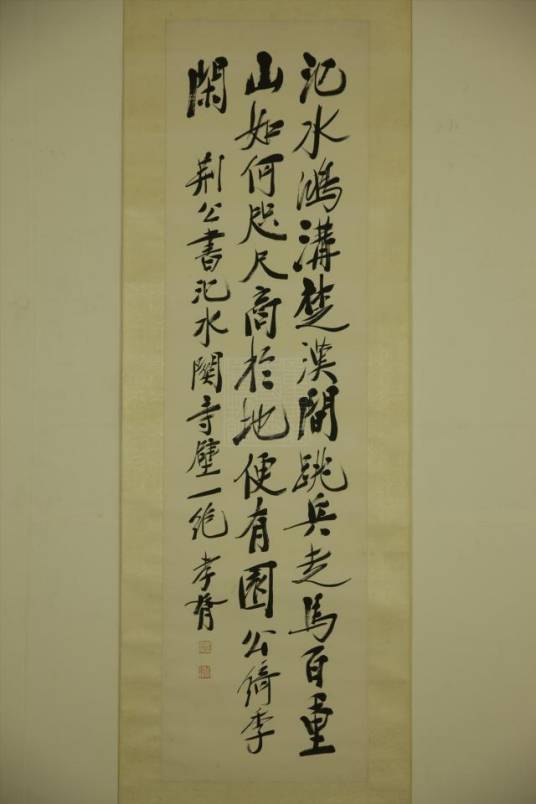 汜水鴻溝楚漢間跳兵走馬百重
山如何咫尺商於地便有園公綺季
閑 荆公書汜水關寺壁一絕 孝胥